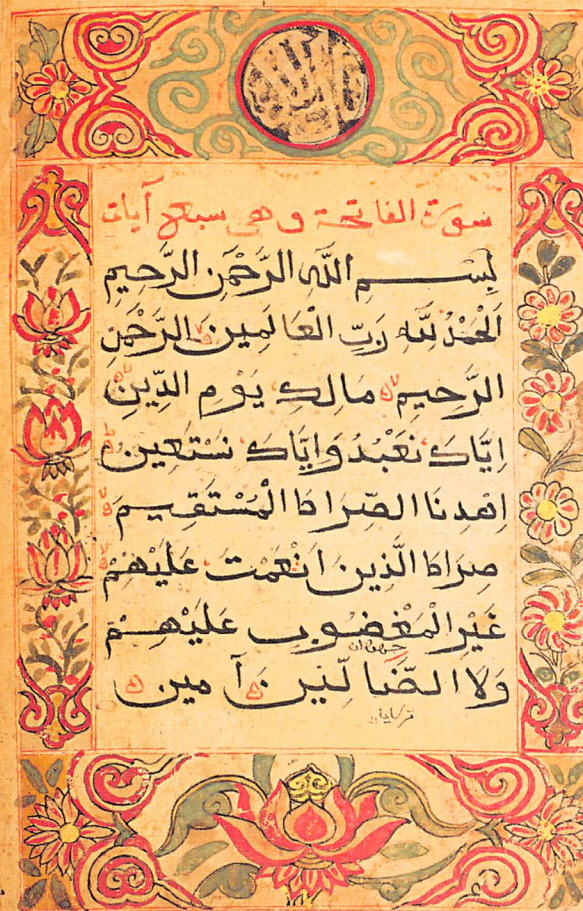 سورة الفاتحة وهي سبع آيات
بِسْمِ اللَّهِ الرَّحْمَٰنِ الرَّحِيمِ
اَلْحَمْدُ لِلَّهِ رَبِّ الْعَالَمِينَ الرَّحْمَٰنِ
الرَّحِيمِ مَالِكِ يَوْمِ الدِّينِ
اِيَّاكَ نَعْبُدُ وَاِيَّاكَ نَسْتَعِينُ
اِهْدِنَا الصِّرَاطَ الْمُسْتَقِيمَ
صِرَاطَ الَّذِينَ اَنْعَمْتَ عَلَيْهِمْ
غَيْرِ الْمَغْضُوبِ عَلَيْهِمْ
وَلَا الضَّالِّينَ آمِينَ